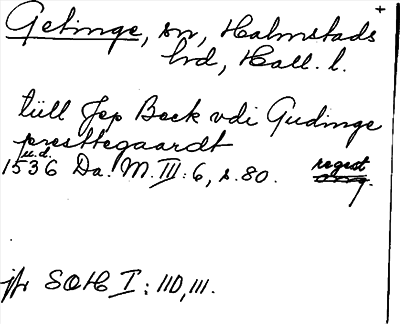 +
Getinge, sn, Halmstads
hrd, Hall. l.
tüll Jep Beck vdi Gudinge
presttegaardt
u.d.
1536 Da. M. III: 6, s. 80. regest
orig.
jfr SOH I: 110, 111.